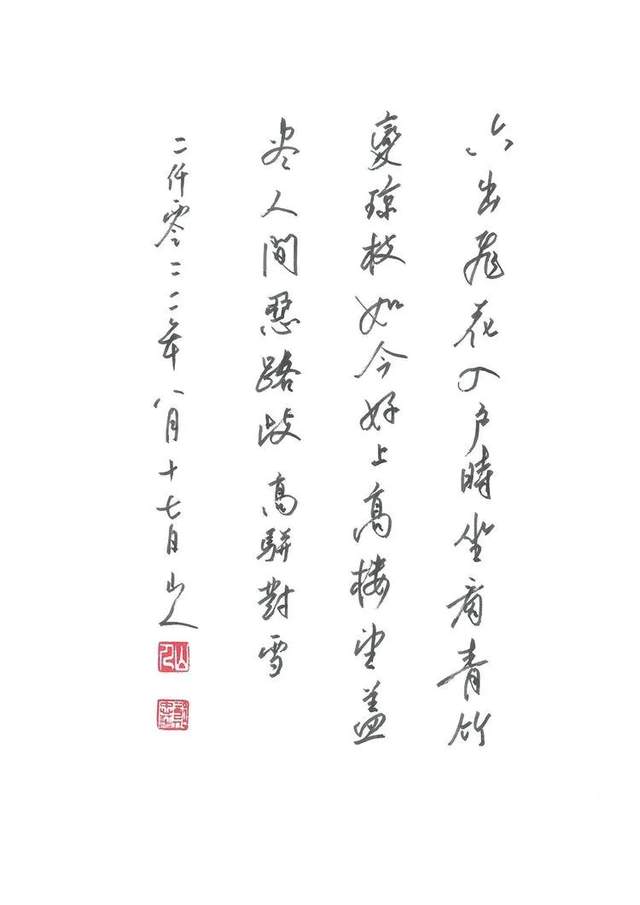 六出飛花入户時坐看青竹
變琼枝如今好上高楼望蓋
尽人間惡路歧 高駢對雪
二仟零二二年八月十七日山人
山人